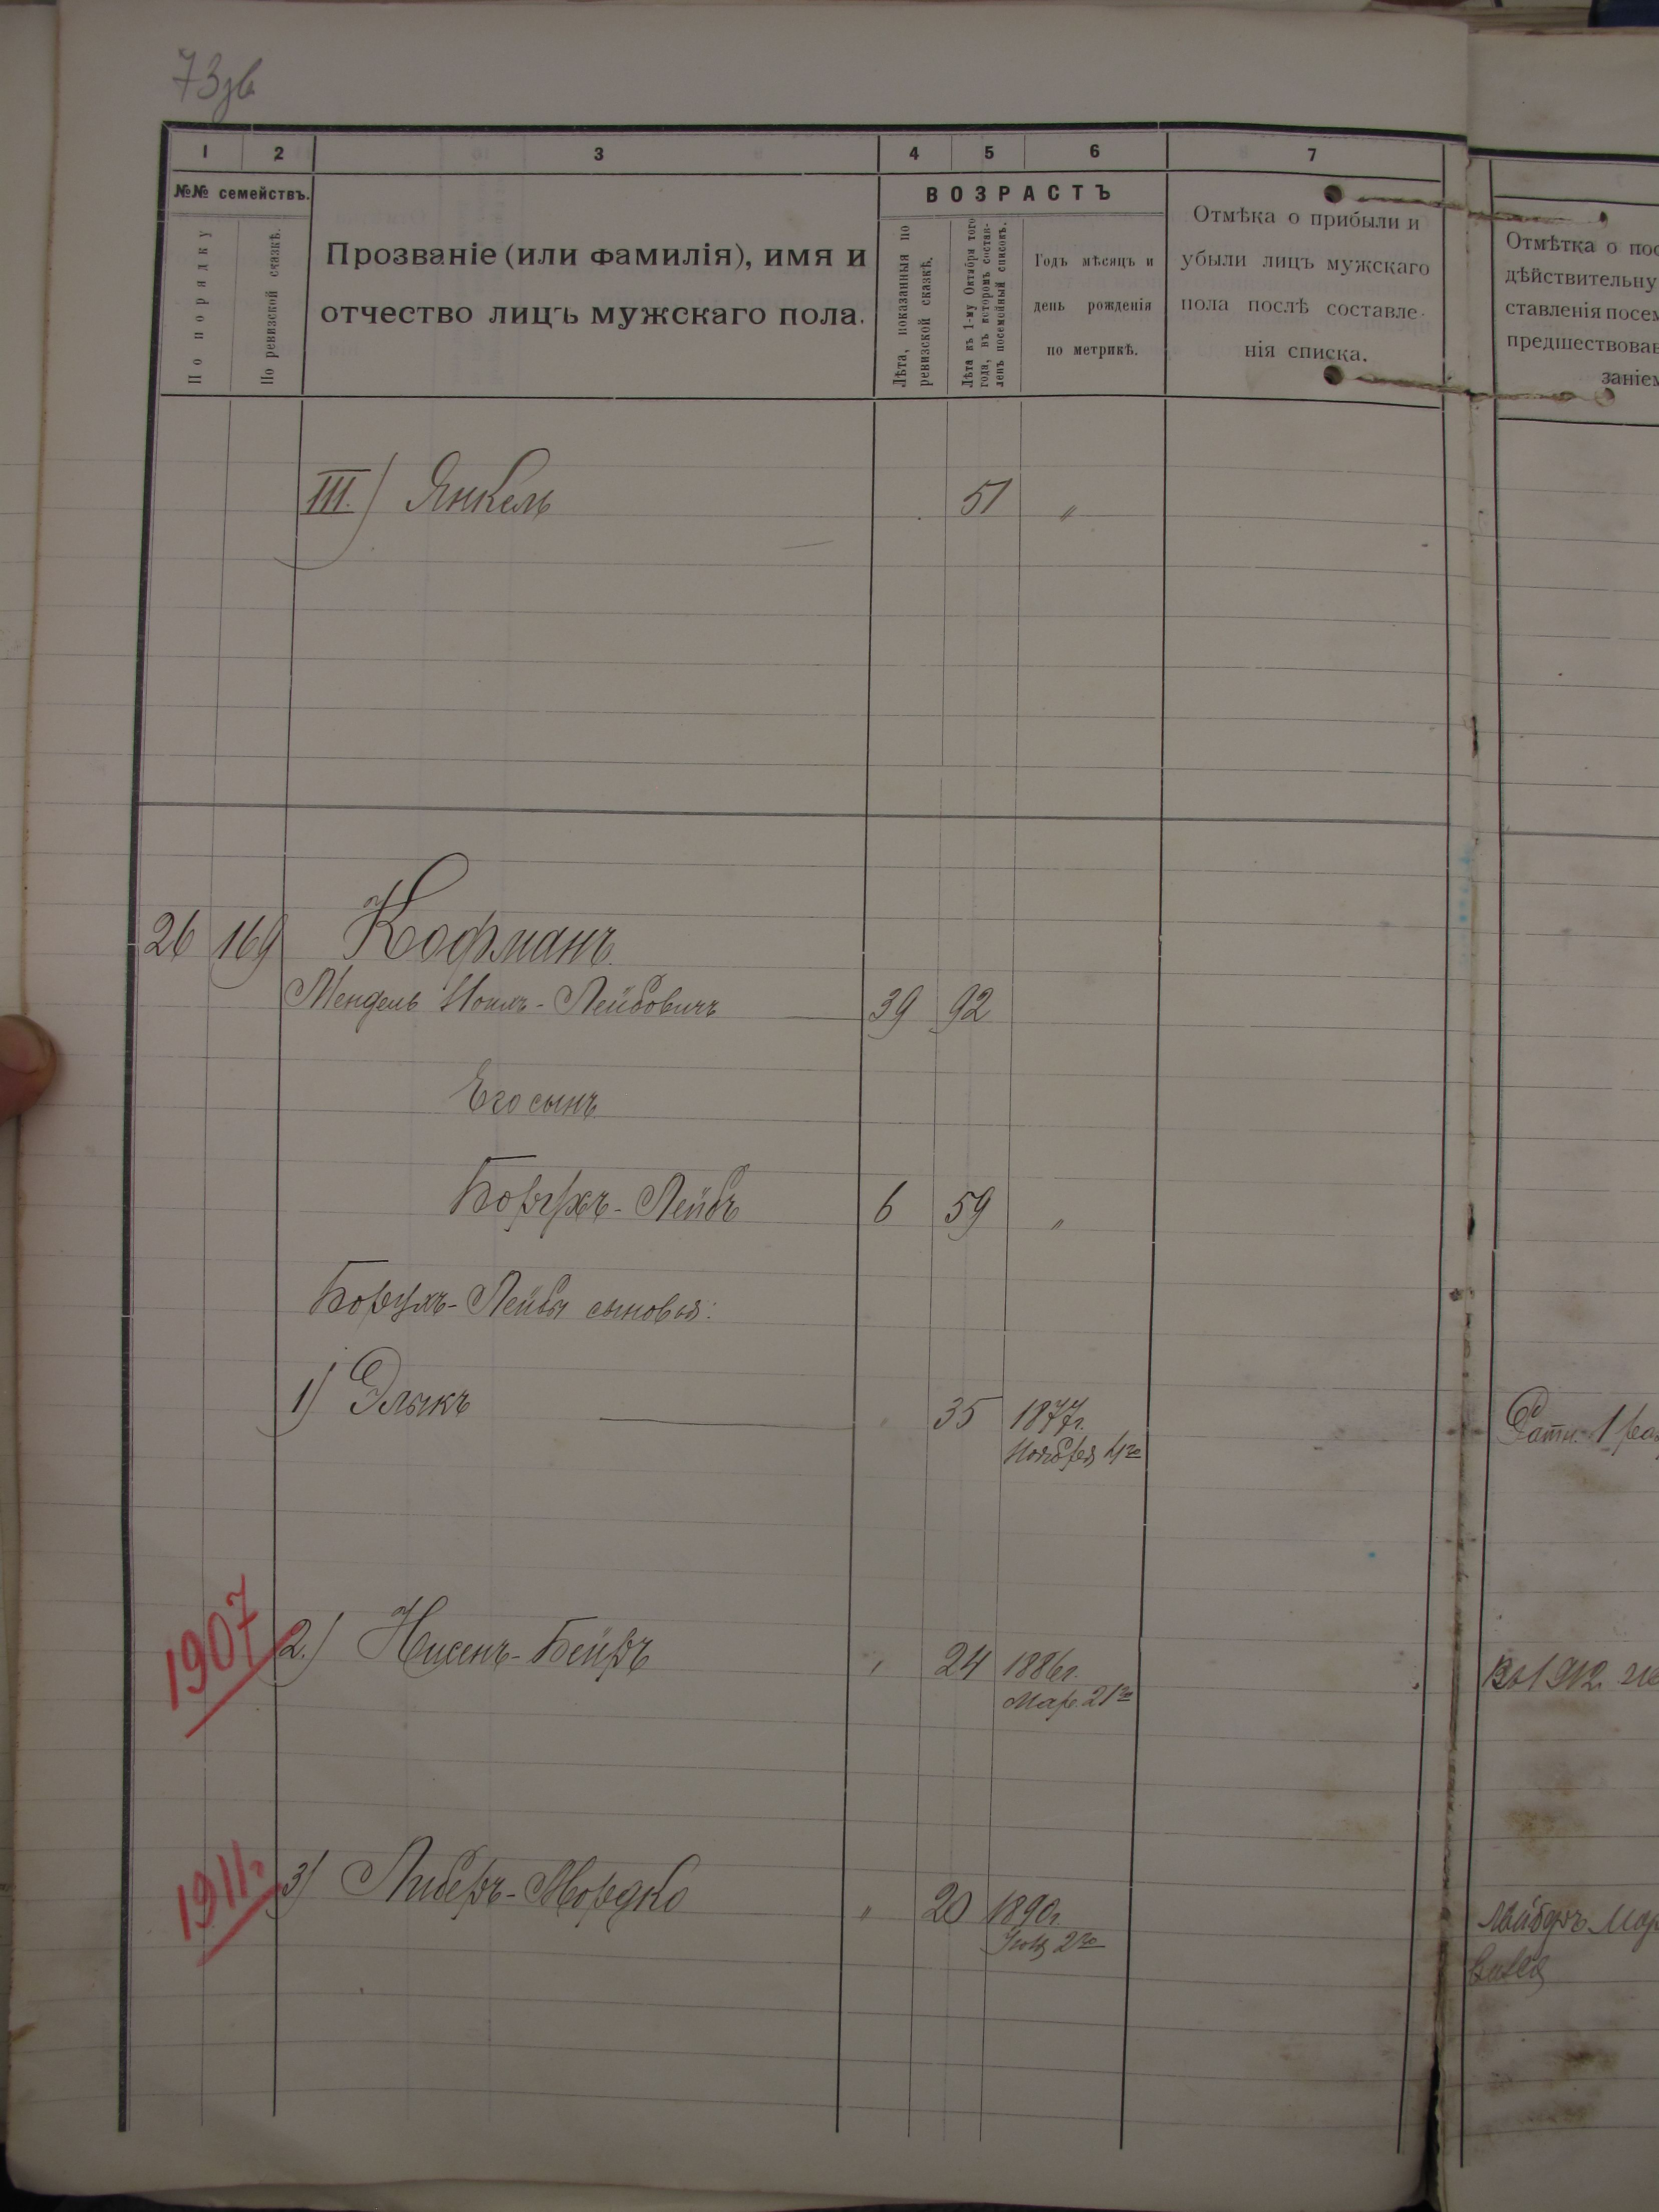 73зв
1 2 3 4 5 6 7
№№ семействъ.
По порядку
По ревизской сказкѣ.
Прозваніе (или фамилія), имя и
отчество лицъ мужскаго пола.
ВОЗРАСТЪ
Лѣта, показанныя по
ревизской сказкѣ.
Лѣта къ 1-му Октября того
года, въ которомъ состав-
ленъ посемейный списокъ.
Годъ мѣсяцъ и
день рожденія
по метрикѣ.
Отмѣка о прибыли и
убыли лицъ мужскаго
пола послѣ составле-
нія списка.
Отмѣтка о пос
дѣйствительну
ставленія посем
предшествовав
заніем
III.) Янкель 51 "
26 169 Кофманъ.
Мендель Ицкъ-Лейбовичъ 39 92
Его сынъ
Борухъ-Лейбъ 6 59 "
Борухъ-Лейбы сыновья:
1) Элыкъ 35 1877г.
Ноября 4го
Ратн. 1 раз
1907 2.) Нисенъ-Бейръ 24 1886г.
Мар. 21го
Въ 1912
1911. 3) Либеръ-Мордко " 20 1890г.
2го